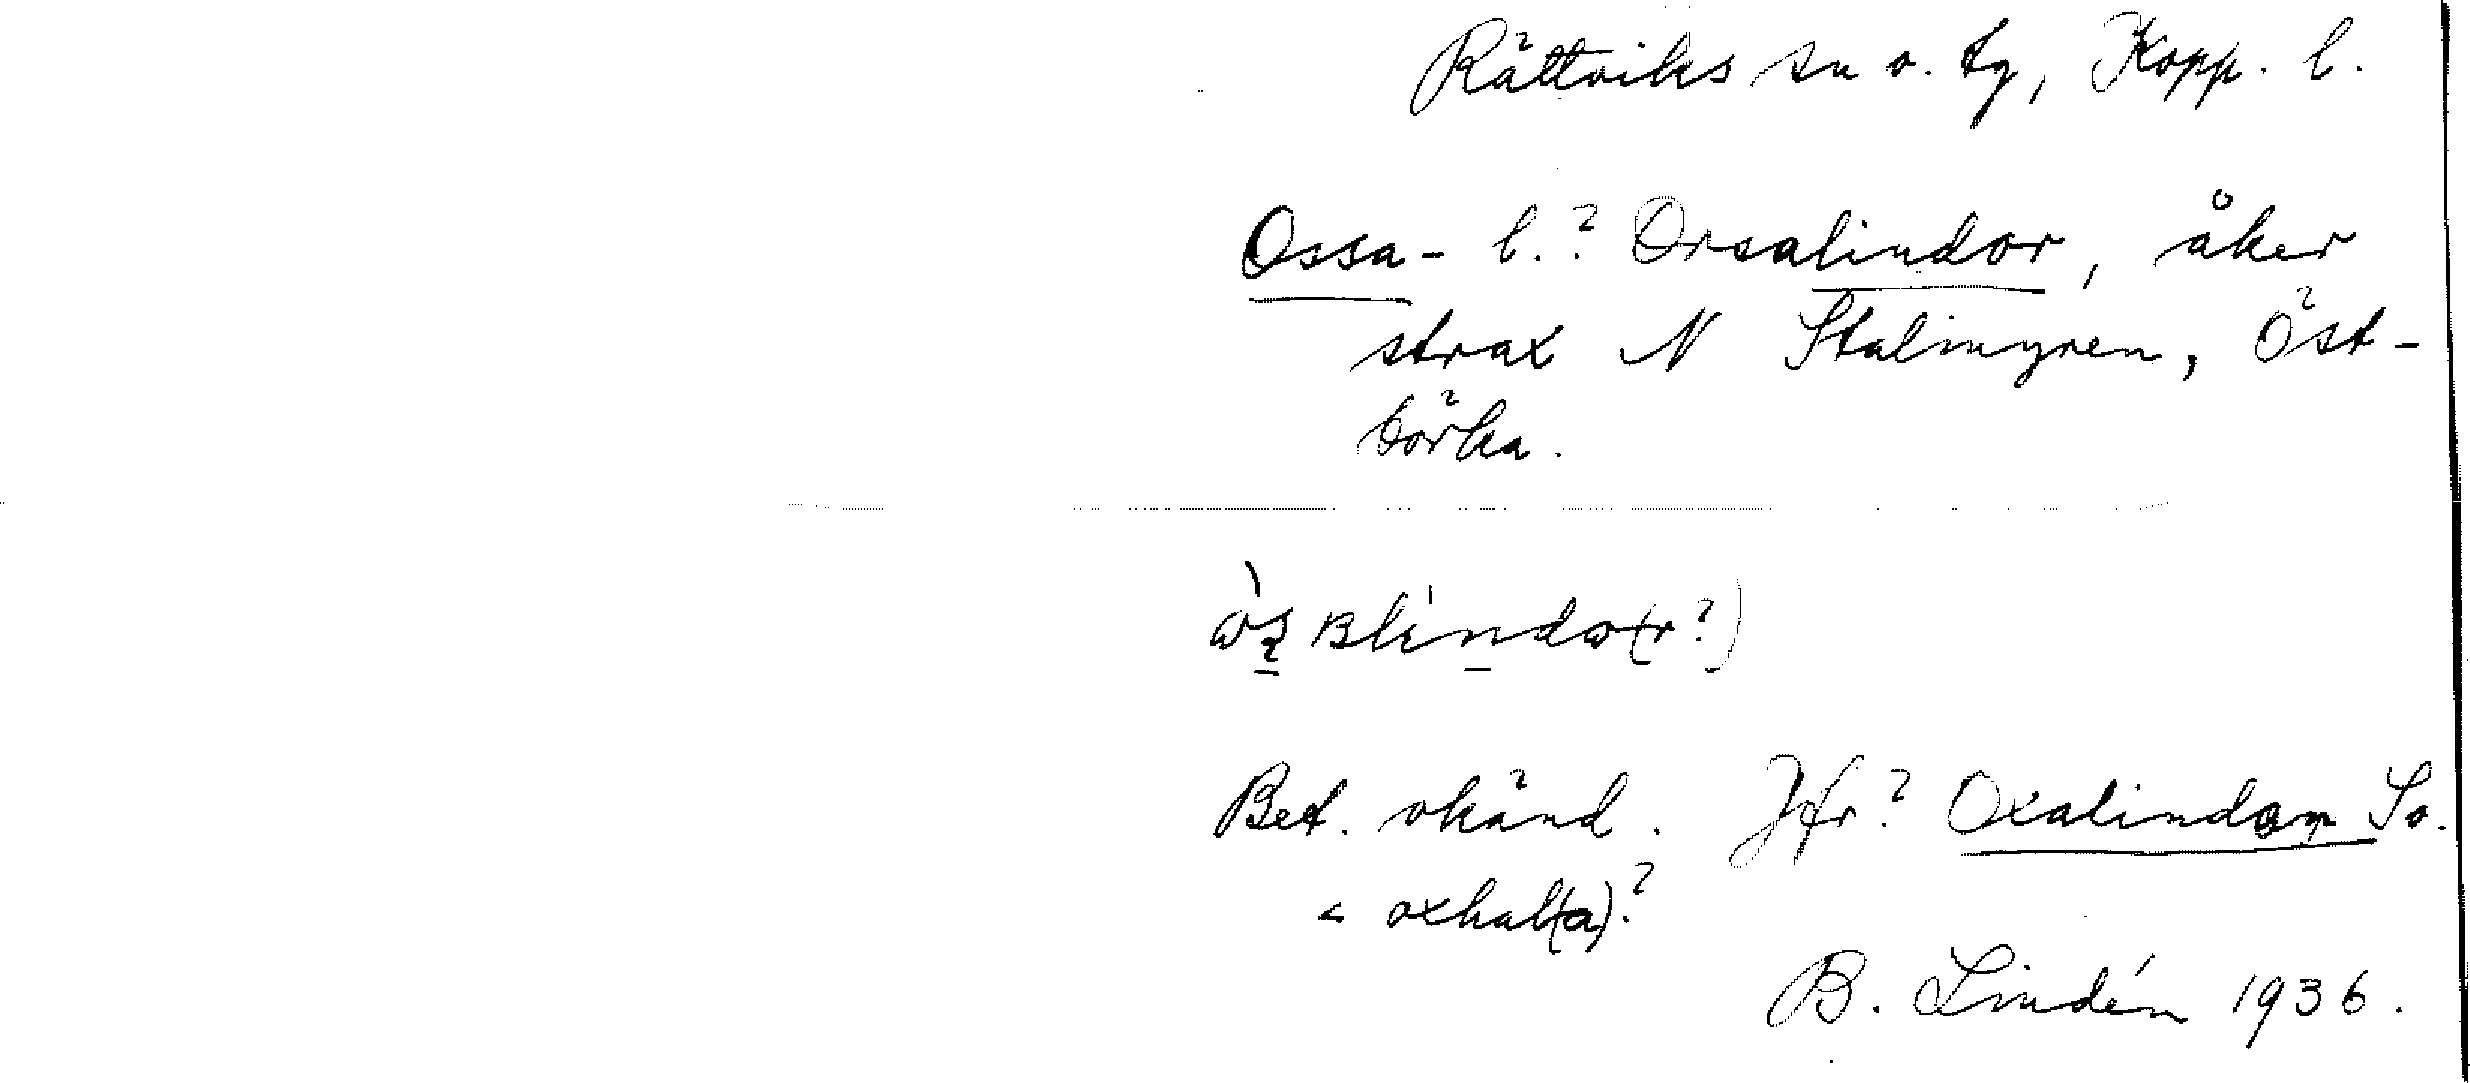 Rättviks sn o. tg, Kopp. l.
Ossa- l.? Orsalindor, åker
strax N Stalimyren, Öst-
börka.
Bet. okänd. Jfr? Oxalindorn So.
< oxhal(a)?
B. Lindén 1936.